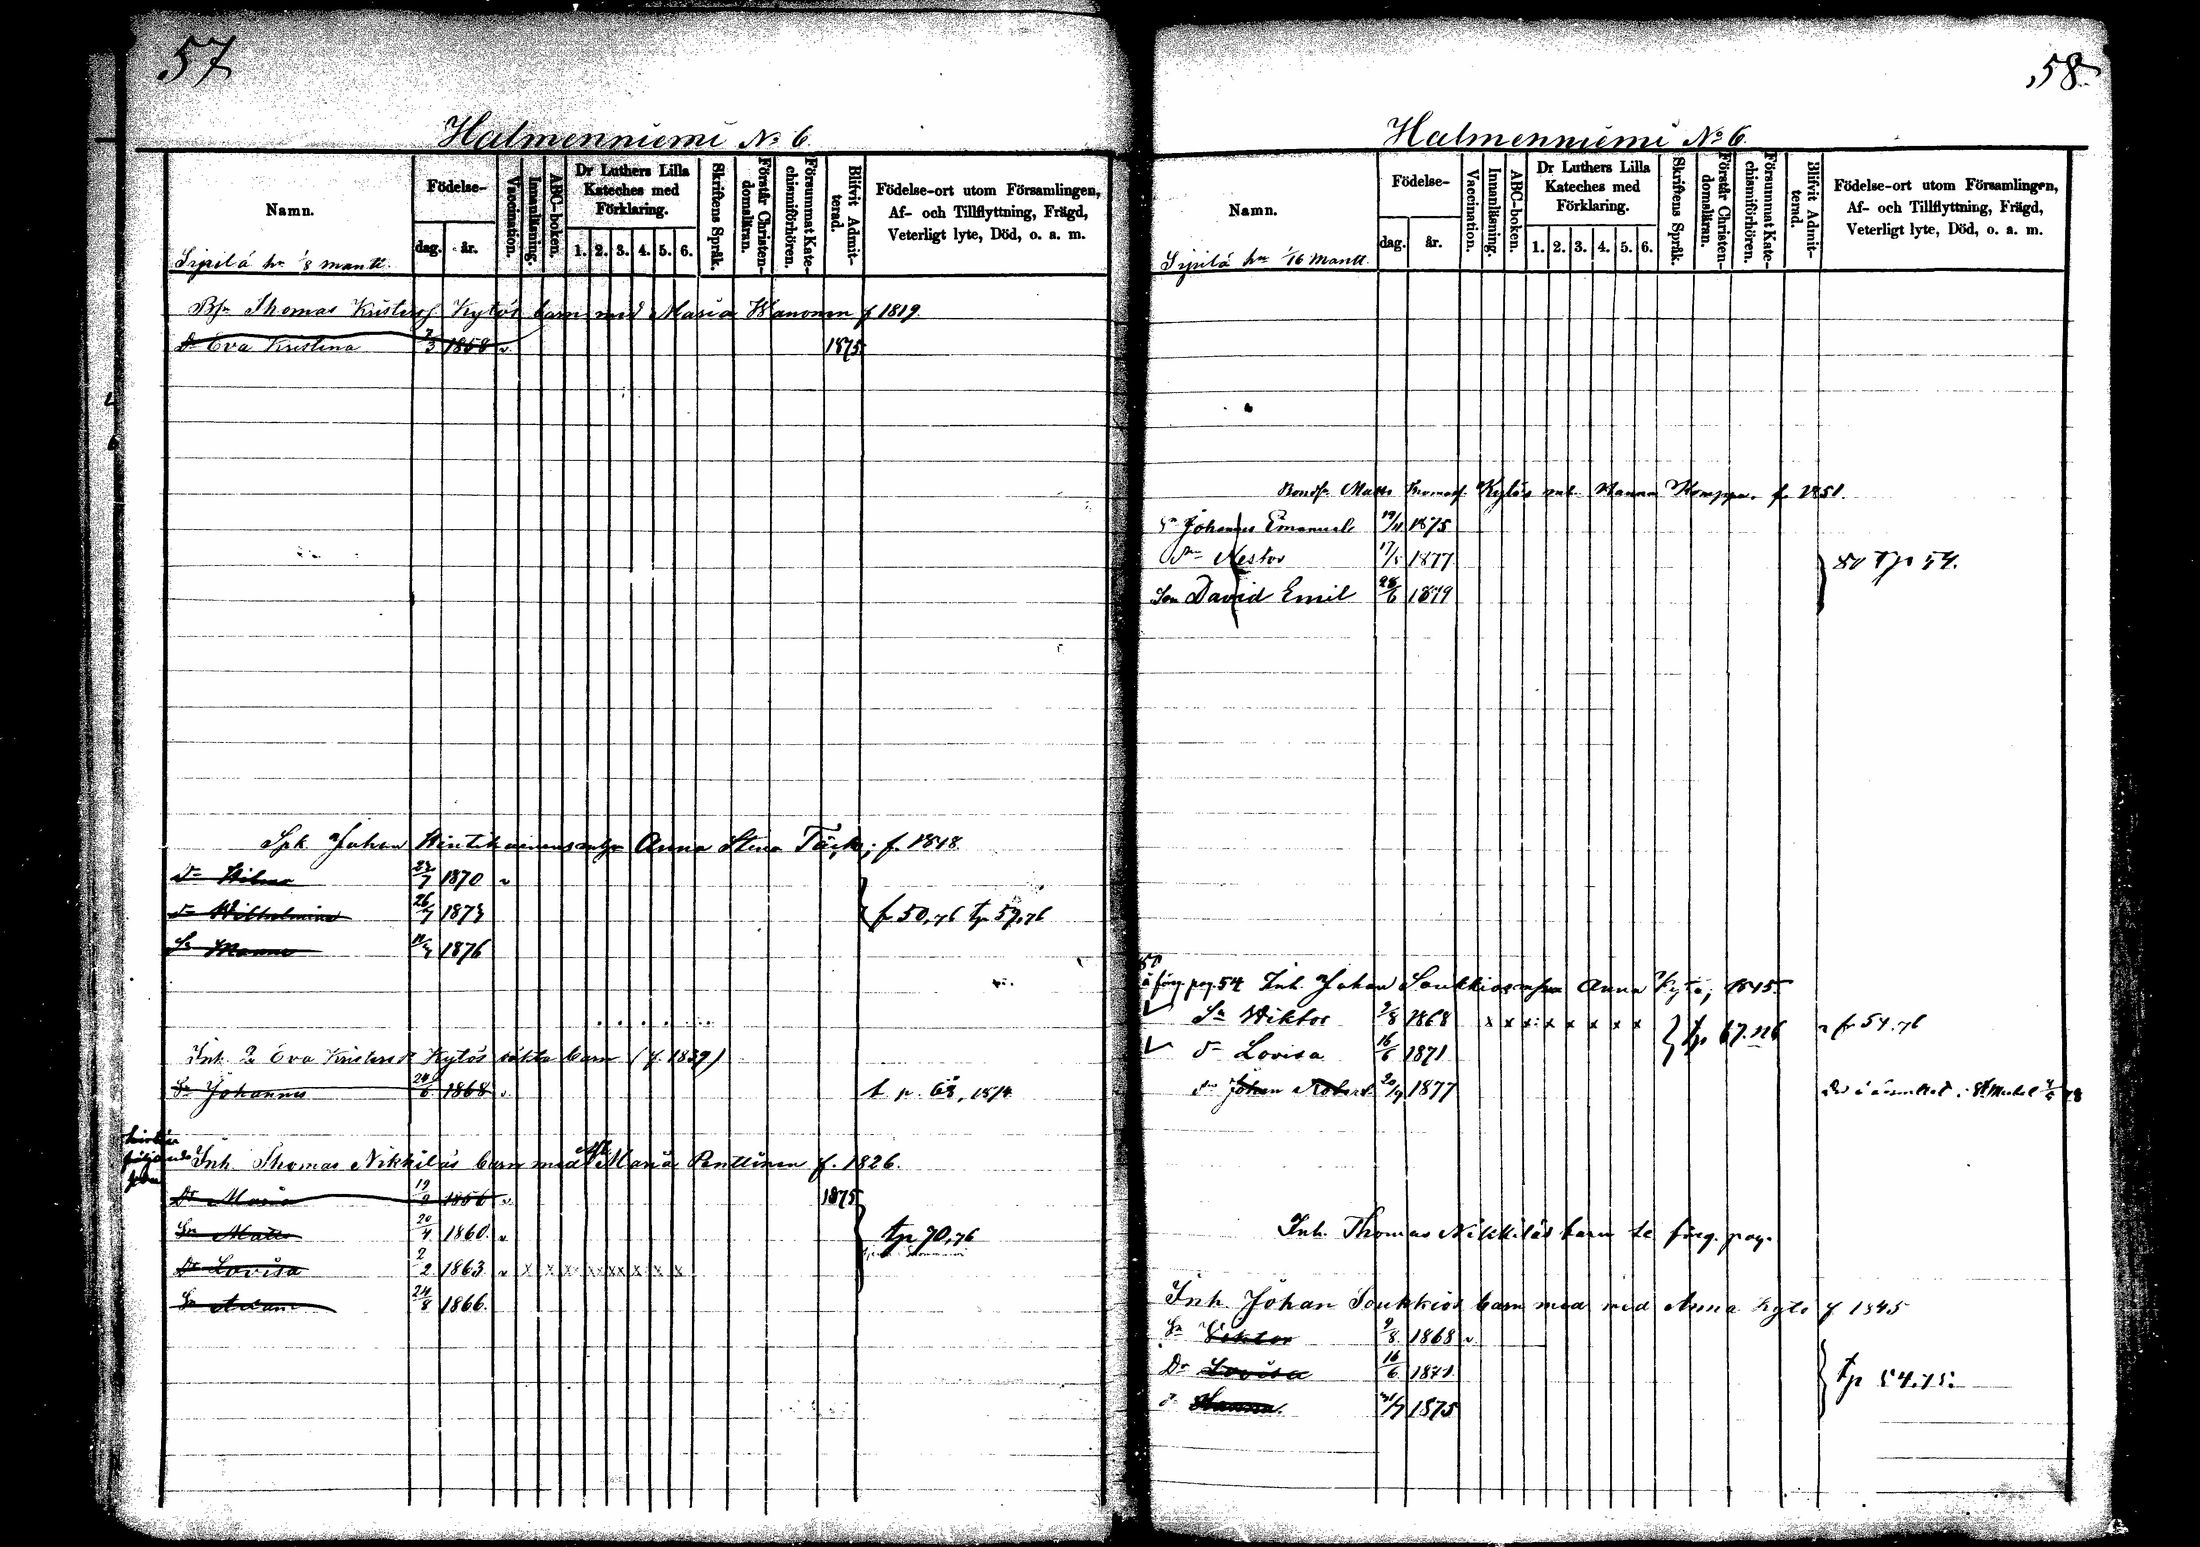 57
Halmenniemi No 6
Namn.
Födelse-
dag.
år.
Vaccination.
Innanläsning.
ABC-boken.
Dr Luthers Lilla
Kateches med
Förklaring.
1. 2. 3. 4. 5. 6.
Skriftens Språk.
Förstår Christen-
domsläran.
Försummat Kate-
chismiförhören.
Blifvit Admit-
terad.
Födelse-ort utom Församlingen,
Af- och Tillflyttning, Frägd,
Veterligt lyte, Död, o. a. m.
Sipilä hn 1/8 mantl.
Thomas Kristersf Kytös barn med Maria Wanonen f 1819.
Dr Eva Kristina 3 1858 v 1875
Spk Johan Hintikainens m hu Anna Stina Täck; f. 1848
dr Hilma 7 1870 v
dr Wilhelmina 26/7 1873 fr 50,76 tp 59,76
Sn Manne 1876
Inh. Eva Kristersdr Kytös oäkta barn (f. 1839)
Sn Johannes 24/6 1868 v t p. 63, 1874
Inh Thomas Nikkiläs barn med Maria Penttinen f. 1826.
Dr Maria 19 1856 v 1875
Sn Matts 20/4 1860 v tp 70,76
Dr Lovisa 2/2 1863 v x x x x x x x x x
Sn Adam 24/8 1866
58
Halmenniemi No 6.
Namn.
Födelse-
dag.
år.
Vaccination.
Innanläsning.
ABC-boken.
Dr Luthers Lilla
Kateches med
Förklaring.
1. 2. 3. 4. 5. 6.
Skriftens Språk.
Förstår Christen-
domsläran.
Försummat Kate-
chismiförhören.
Blifvit Admit-
terad.
Födelse-ort utom Församlingen,
Af- och Tillflyttning, Frägd,
Veterligt lyte, Död, o. a. m.
Sipilä hn 1/16 Mantl.
Matts Thomasf. Kytös Hanna f. 1851.
Sn Johannes Emanuel 1875
Sn Nestor 1877 80 tp 54.
Son David Emil 28/6 1879
å förg. pag. 54 Inh. Johan Soukkios m hu Anna Kytö, 1845
Sn Wiktor 9/8 1868 x x x x x x x x tp 67. fr 54.76
dr Lovisa 16/6 1871
Johan Robert 20/9 1877
Inh. Thomas Nikkiläs barn se förg. pag.
Inh. Johan Soukkios barn med med Anna Kytö f 1845
Sn Viktor 9/8 1868 v
Dr Lovisa 16/6 1871 tp 54.75.
dr Hanna. 1875